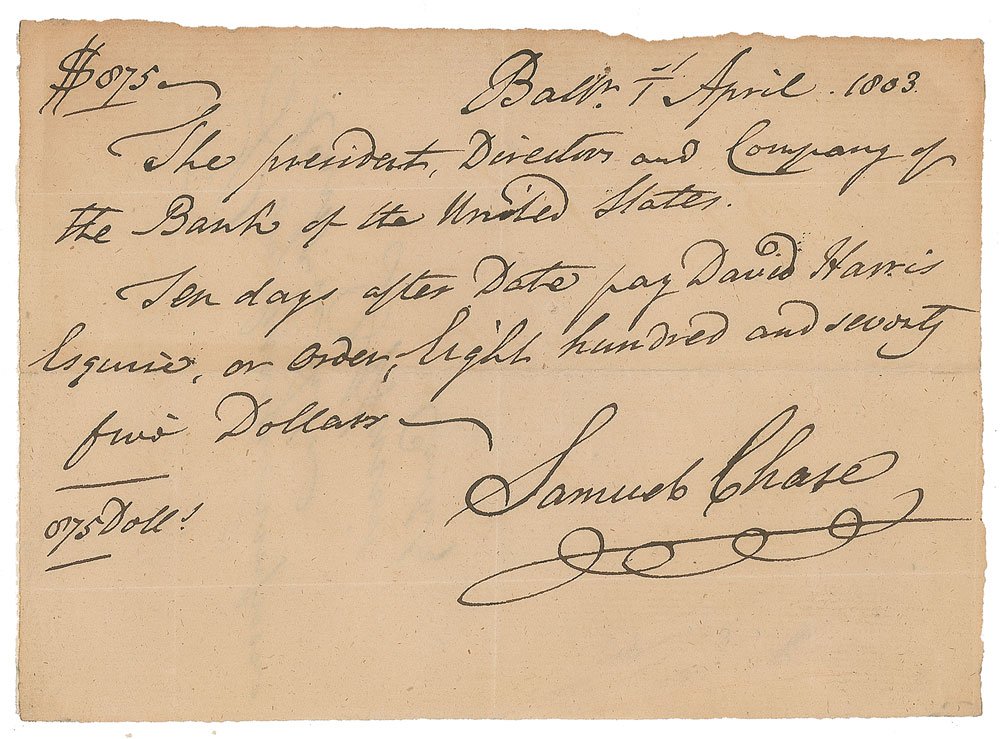 $875
Balt. 1st April. 1803.
The president, Directors and Company of
the Bank of the United States.
Ten days after Date pay David Harris
Esquire, or order, Eight hundred and seventy
five Dollars
Samuel Chase
875 Doll.s